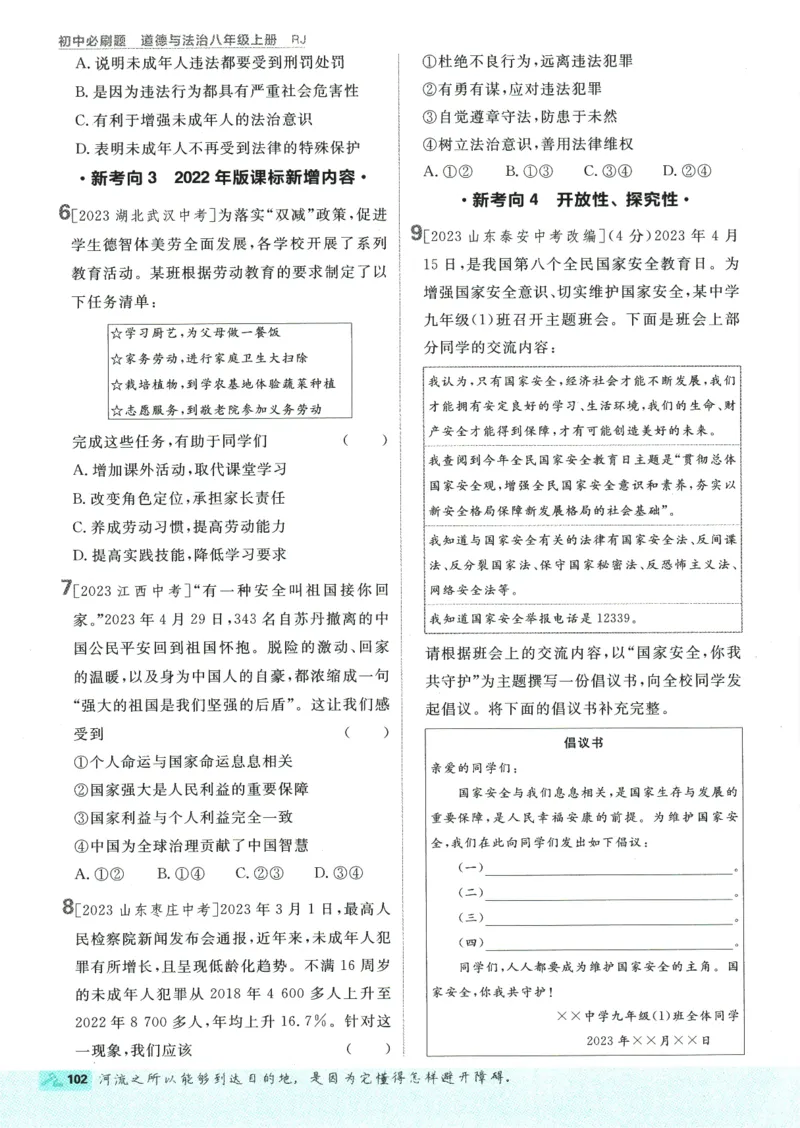 初中必刷题 道德与法治八年级上册 RJ
A.说明未成年人违法都要受到刑罚处罚
B.是因为违法行为都具有严重社会危害性
C.有利于增强未成年人的法治意识
D.表明未成年人不再受到法律的特殊保护
·新考向3 2022年版课标新增内容·
6[2023湖北武汉中考]为落实“双减”政策,促进
学生德智体美劳全面发展,各学校开展了系列
教育活动。某班根据劳动教育的要求制定了以
下任务清单:
☆学习厨艺,为父母做一餐饭
☆家务劳动,进行家庭卫生大扫除
☆栽培植物,到学农基地体验蔬菜种植
☆志愿服务,到敬老院参加义务劳动
完成这些任务,有助于同学们 ( )
A.增加课外活动,取代课堂学习
B.改变角色定位,承担家长责任
C.养成劳动习惯,提高劳动能力
D.提高实践技能,降低学习要求
7[2023江西中考]“有一种安全叫祖国接你回
家。”2023年4月29日,343名自苏丹撤离的中
国公民平安回到祖国怀抱。脱险的激动、回家
的温暖,以及身为中国人的自豪,都浓缩成一句
“强大的祖国是我们坚强的后盾”。这让我们感
受到 ( )
①个人命运与国家命运息息相关
②国家强大是人民利益的重要保障
③国家利益与个人利益完全一致
④中国为全球治理贡献了中国智慧
A.①② B.①④ C.②③ D.③④
8[2023山东枣庄中考]2023年3月1日,最高人
民检察院新闻发布会通报,近年来,未成年人犯
罪有所增长,且呈现低龄化趋势。不满16周岁
的未成年人犯罪从2018年4 600多人上升至
2022年8 700多人,年均上升16.7%。针对这
一现象,我们应该 ( )
①杜绝不良行为,远离违法犯罪
②有勇有谋,应对违法犯罪
③自觉遵章守法,防患于未然
④树立法治意识,善用法律维权
A.①② B.①③ C.③④ D.②④
·新考向4 开放性、探究性·
9[2023山东泰安中考改编](4分)2023年4月
15日,是我国第八个全民国家安全教育日。为
增强国家安全意识、切实维护国家安全,某中学
九年级(1)班召开主题班会。下面是班会上部
分同学的交流内容:
我认为,只有国家安全,经济社会才能不断发展,我们
才能拥有安定良好的学习、生活环境,我们的生命、财
产安全才能得到保障,才有可能创造美好的未来。
我查阅到今年全民国家安全教育日主题是“贯彻总体
国家安全观,增强全民国家安全意识和素养,夯实以
新安全格局保障新发展格局的社会基础”。
我知道与国家安全有关的法律有国家安全法、反间谍
法、反分裂国家法、保守国家秘密法、反恐怖主义法、
网络安全法等。
我知道国家安全举报电话是12339。
请根据班会上的交流内容,以“国家安全,你我
共守护”为主题撰写一份倡议书,向全校同学发
起倡议。将下面的倡议书补充完整。
倡议书
亲爱的同学们:
国家安全与我们息息相关,是国家生存与发展的
重要保障,是人民幸福安康的前提。为维护国家安
全,我们在此向同学们发出如下倡议:
(一)。
(二)。
(三)。
(四)。
同学们,人人都要成为维护国家安全的主角。国
家安全,你我共守护!
××中学九年级(1)班全体同学
2023年××月××日
102 河流之所以能够到达目的地,是因为它懂得怎样避开障碍.